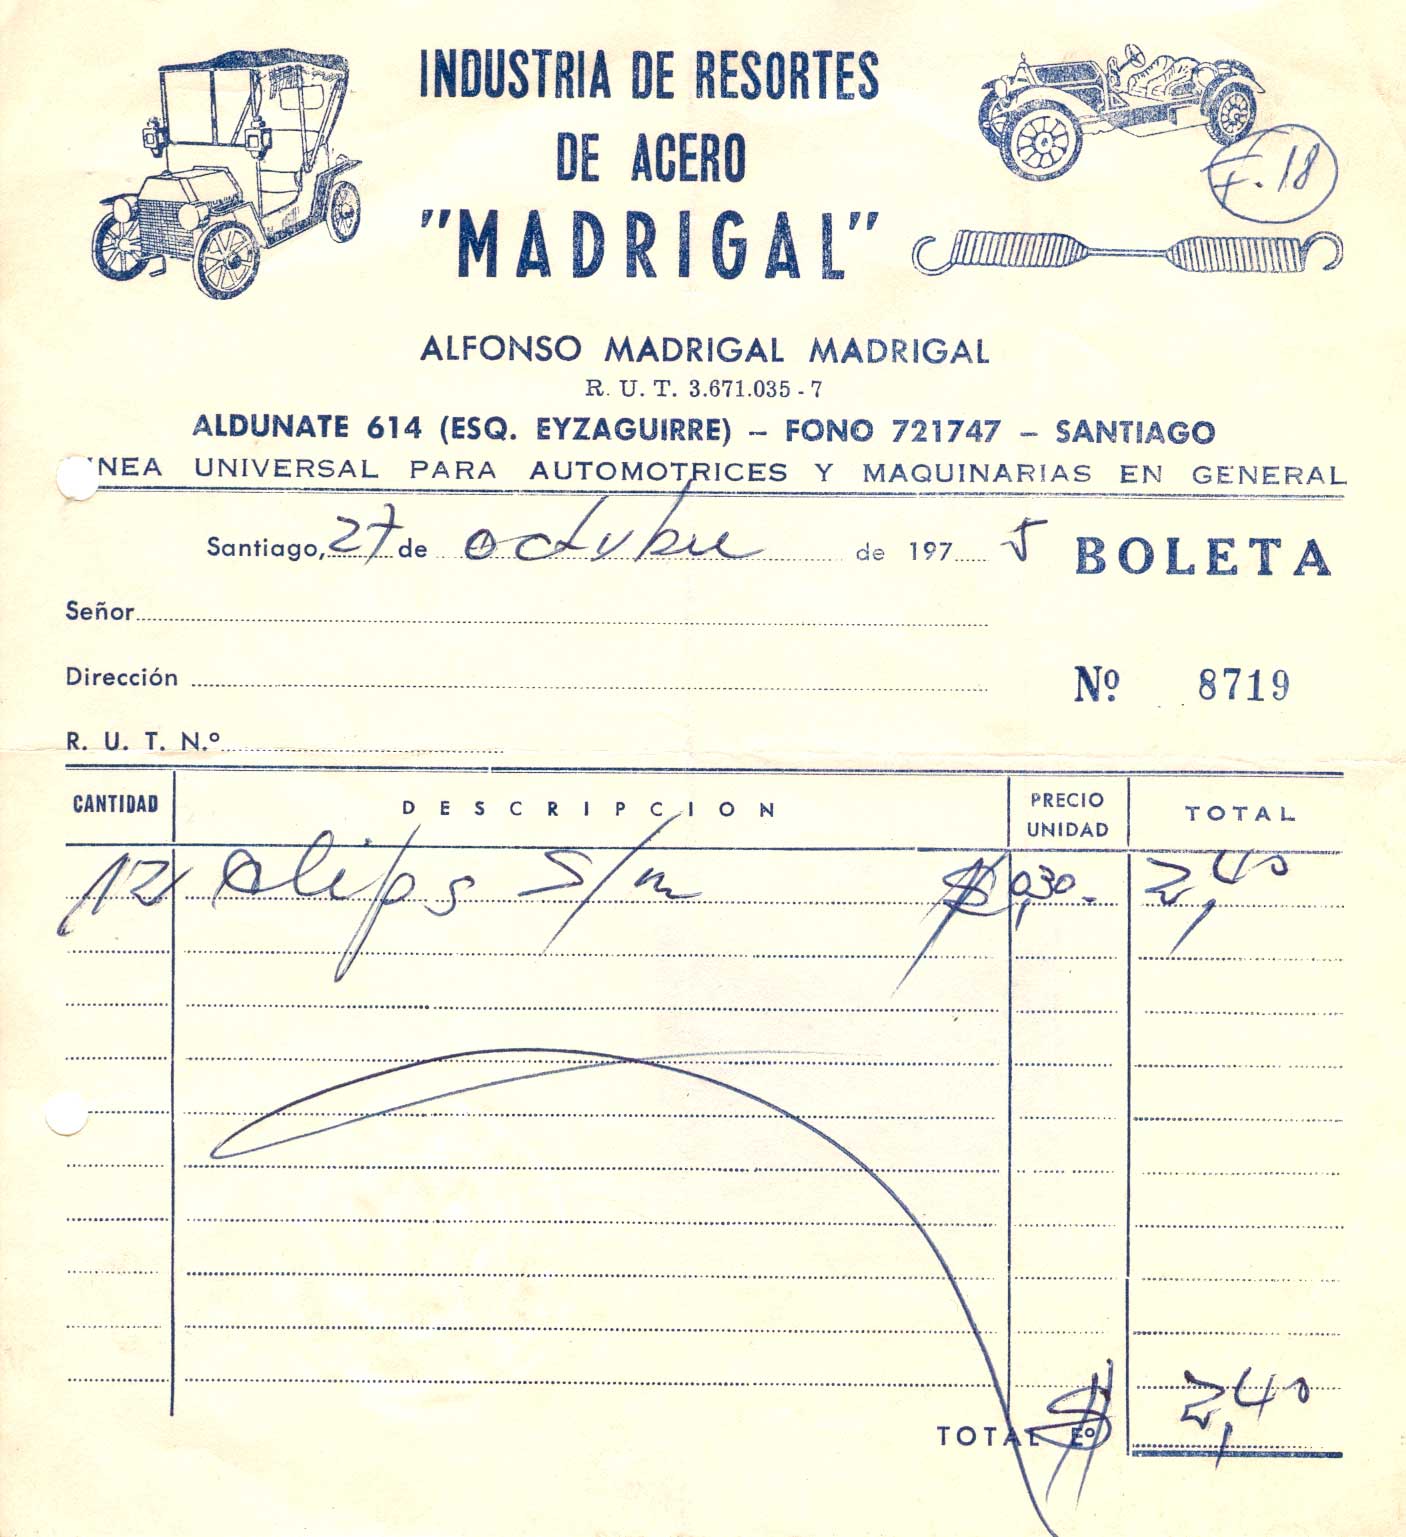 INDUSTRIA DE RESORTES
DE ACERO
"MADRIGAL"
F. 18
ALFONSO MADRIGAL MADRIGAL
R. U. T. 3.671.035 - 7
ALDUNATE 614 (ESQ. EYZAGUIRRE) — FONO 721747 — SANTIAGO
NEA UNIVERSAL PARA AUTOMOTRICES Y MAQUINARIAS EN GENERAL
Santiago, 27 de octubre de 197 5 BOLETA
Señor
Dirección Nº 8719
R. U. T. N.º
CANTIDAD DESCRIPCION PRECIO UNIDAD TOTAL
12 clips s/m $ 0,30.- 2,40
TOTAL Eº $ 2,40